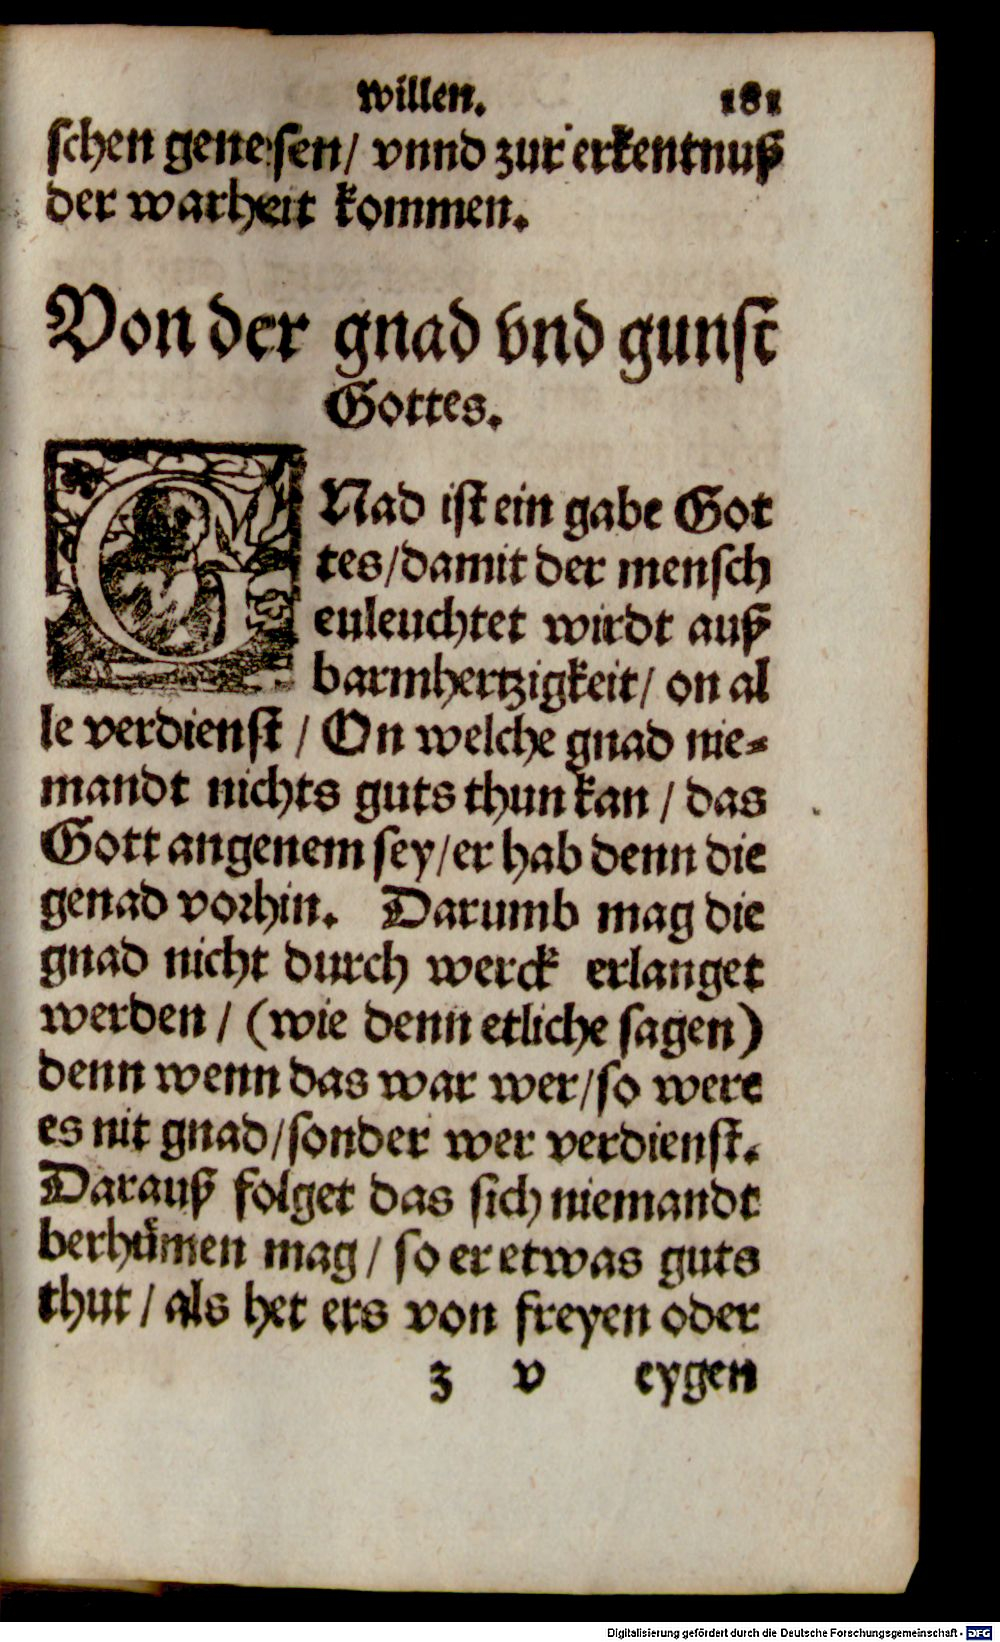 willen. 181
schen genesen/ vnnd zur erkentnuß
der warheit kommen.
Von der gnad vnd gunst
Gottes.
GNad ist ein gabe Got
tes/damit der mensch
euleuchtet wirdt auß
barmhertzigkeit/ on al
le verdienst / On welche gnad nie-
mandt nichts guts thun kan / das
Gott angenem sey/er hab denn die
genad vorhin. Darumb mag die
gnad nicht durch werck erlanget
werden / (wie denn etliche sagen)
denn wenn das war wer/so were
es nit gnad/sonder wer verdienst.
Darauß folget das sich niemandt
berhümen mag / so er etwas guts
thut / als het ers von freyen oder
z v eygen
Digitalisierung gefördert durch die Deutsche Forschungsgemeinschaft - DFG